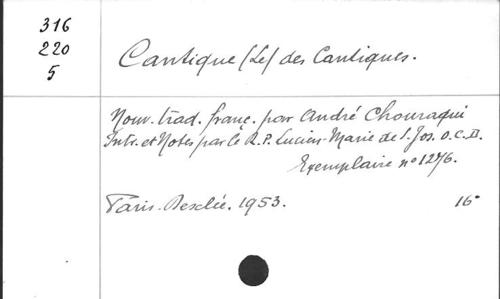 316
220
5
Cantique (Le) des Cantiques.
Nouv. trad. franç. par André Chouraqui
Intr. et Notes par le R.P. Lucien-Marie de S. Jos. O.C.D.
Exemplaire n° 1276.
Paris. Desclée. 1953. 16°